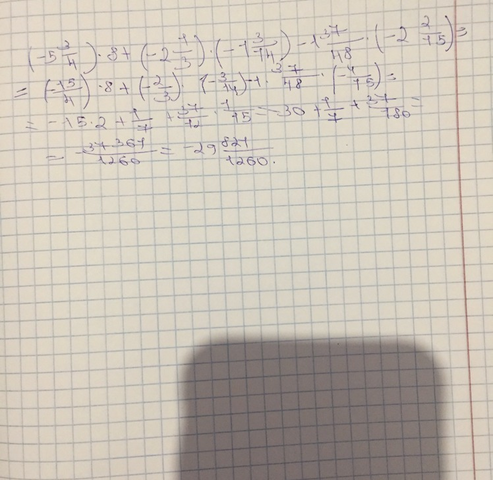 (-5 3/4) · 8 + (-2 1/3) · (-1 3/14) - 1 37/48 · (-2 2/15) =
= (-15/4) · 8 + (-2/3) · (-3/14) - 1 · 37/48 · (-4/15) =
= -15 · 2 + 1/7 + 37/12 · 1/15 = -30 + 1/7 + 37/180 =
= -37367/1260 = -29 821/1260.